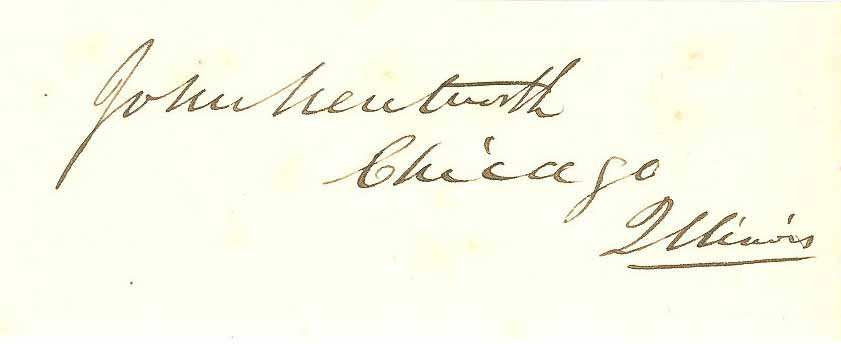 John Wentworth
Chicago
Illinois